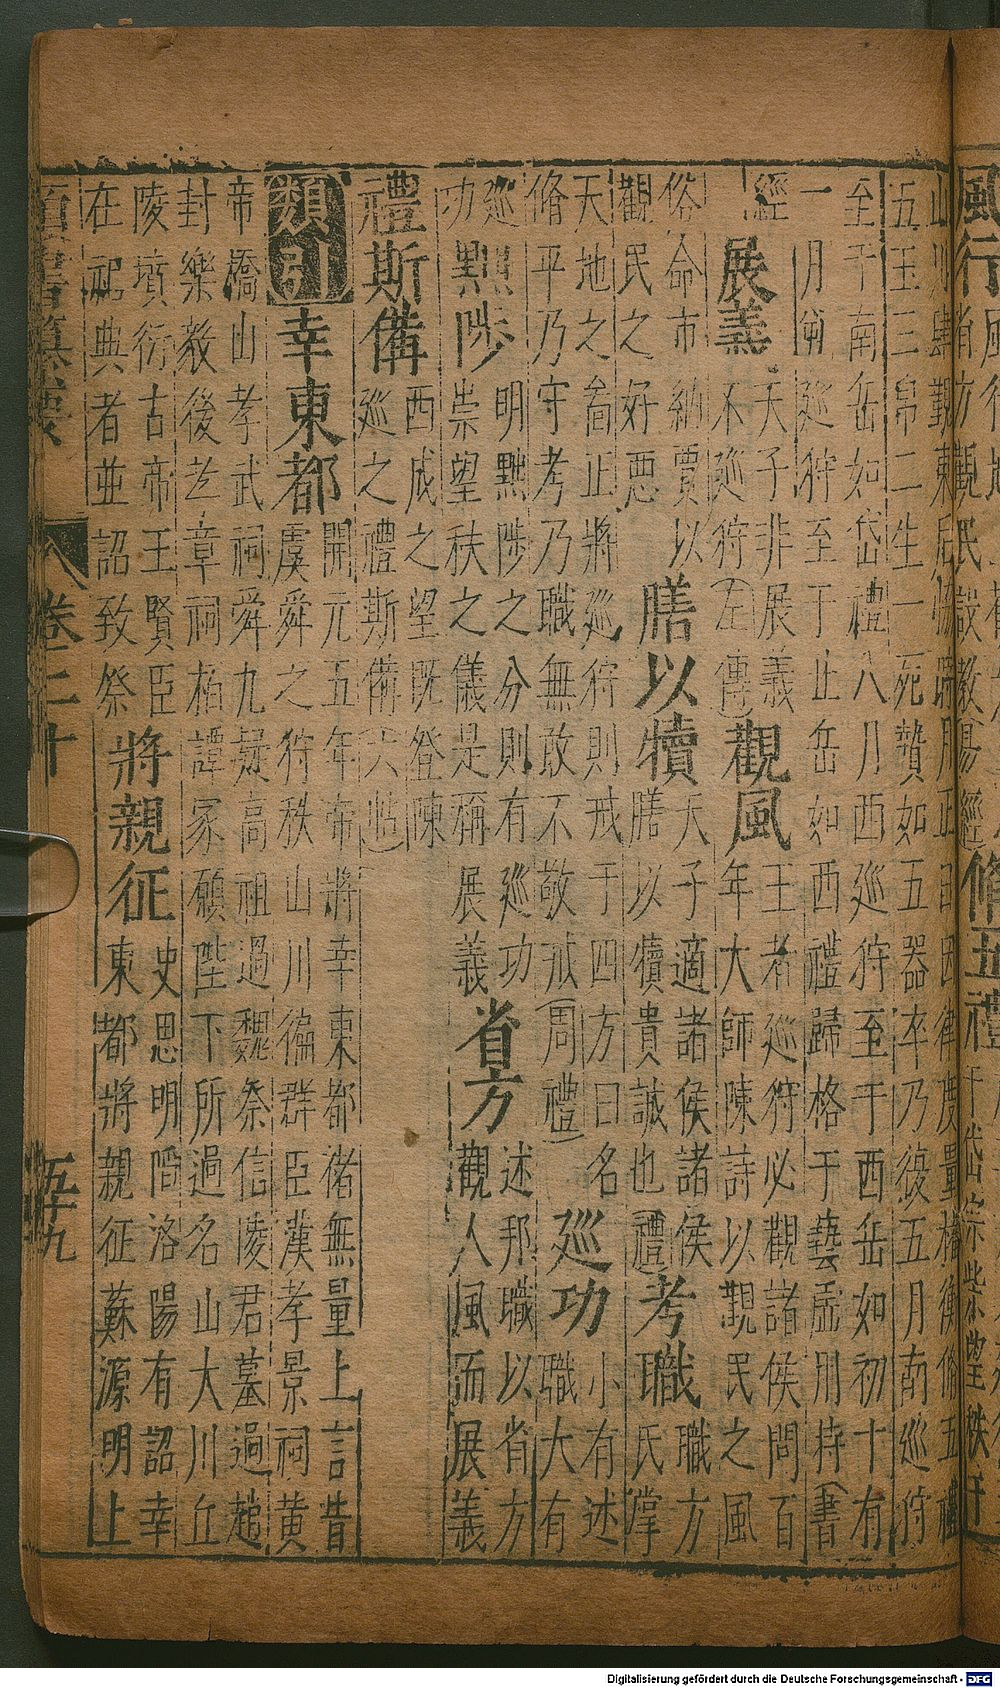 山川肆覲東后協時月正日因律度量權衡脩五禮
五玉三帛二生一死贄如五器卒乃復五月南巡狩
至于南岳如岱禮八月西巡狩至于西岳如初十有
一月朔巡狩至于止岳如西禮歸格于藝祖用特(書
經
展義
天子非展義
不巡狩(左傳)
觀風
王者巡狩必觀諸侯問百
年大師陳詩以觀民之風
俗命市納賈以
觀民之好惡
膳以犢
天子適諸侯諸侯
膳以犢貴誠也(禮)
考職
職方
氏掌
天地之啚正將巡狩則戒于四方曰名
脩平乃守考乃職無敢不敬戒(周禮)
巡功
小有述
職大有
巡
功
黜陟
明黜陟之分則有巡功
崇望秩之儀是稱展義
省方
述邦職以省方
觀人風而展義
禮斯備
西成之望既登陳
巡之禮斯備(六帖)
類引
幸東都
開元五年帝將幸東都禇無量上言昔
虞舜之狩秩山川徧群臣漢孝景祠黃
帝橋山孝武祠舜九疑高祖過魏祭信陵君墓過趙
封樂毅後孝章祠栢譚冢願陛下所過名山大川丘
陵墳衍古帝王賢臣
在祀典者並詔致祭
將親征
史思明陷洛陽有詔幸
東都將親征蘇源明上
卷二十
五十九
Digitalisierung gefördert durch die Deutsche Forschungsgemeinschaft - DFG